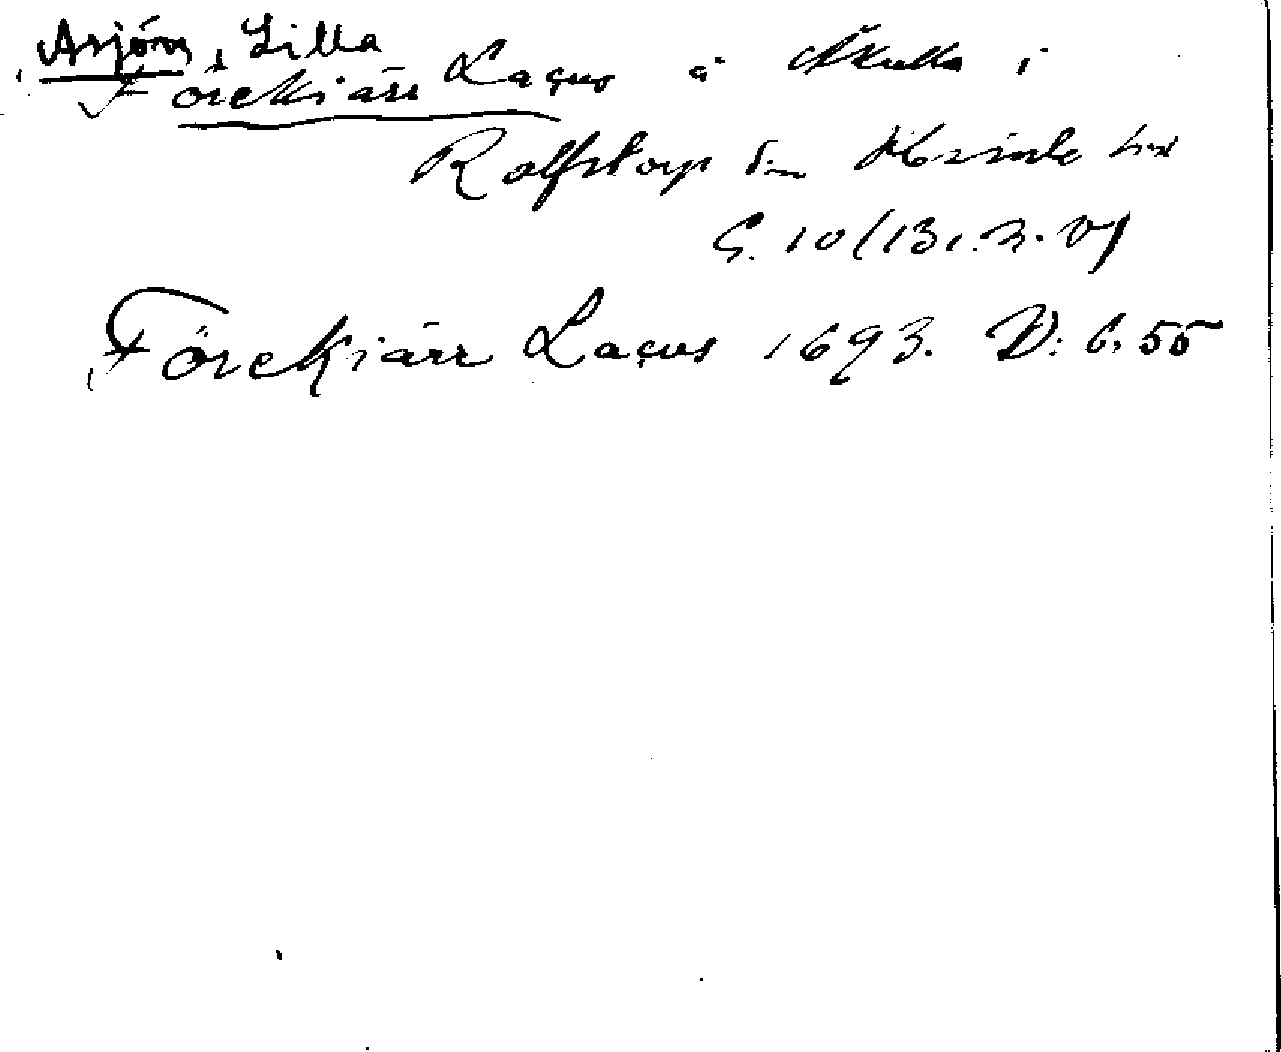 Asjön, Lilla
Förekiärr Lacus å Åkulla i
Rolfstorp sn Himle hd
G. 10/131.
Förekiärr Lacus 1693. D: 6, 55